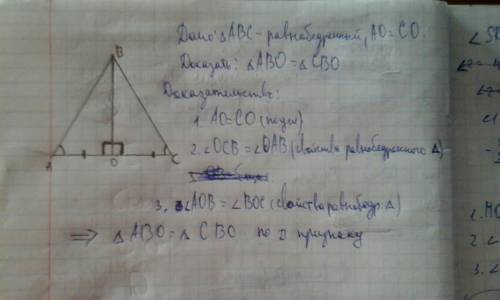 Дано: △ABC - равнобедренный, AO=CO.
Доказать: △ABO = △CBO
Доказательство:
1. AO=CO (по усл)
2. ∠OCB = ∠OAB (свойства равнобедренного △)
3. ∠AOB = ∠BOC (свойства равнобедр. △)
⇒ △ABO = △CBO по II признаку
B
A
O
C